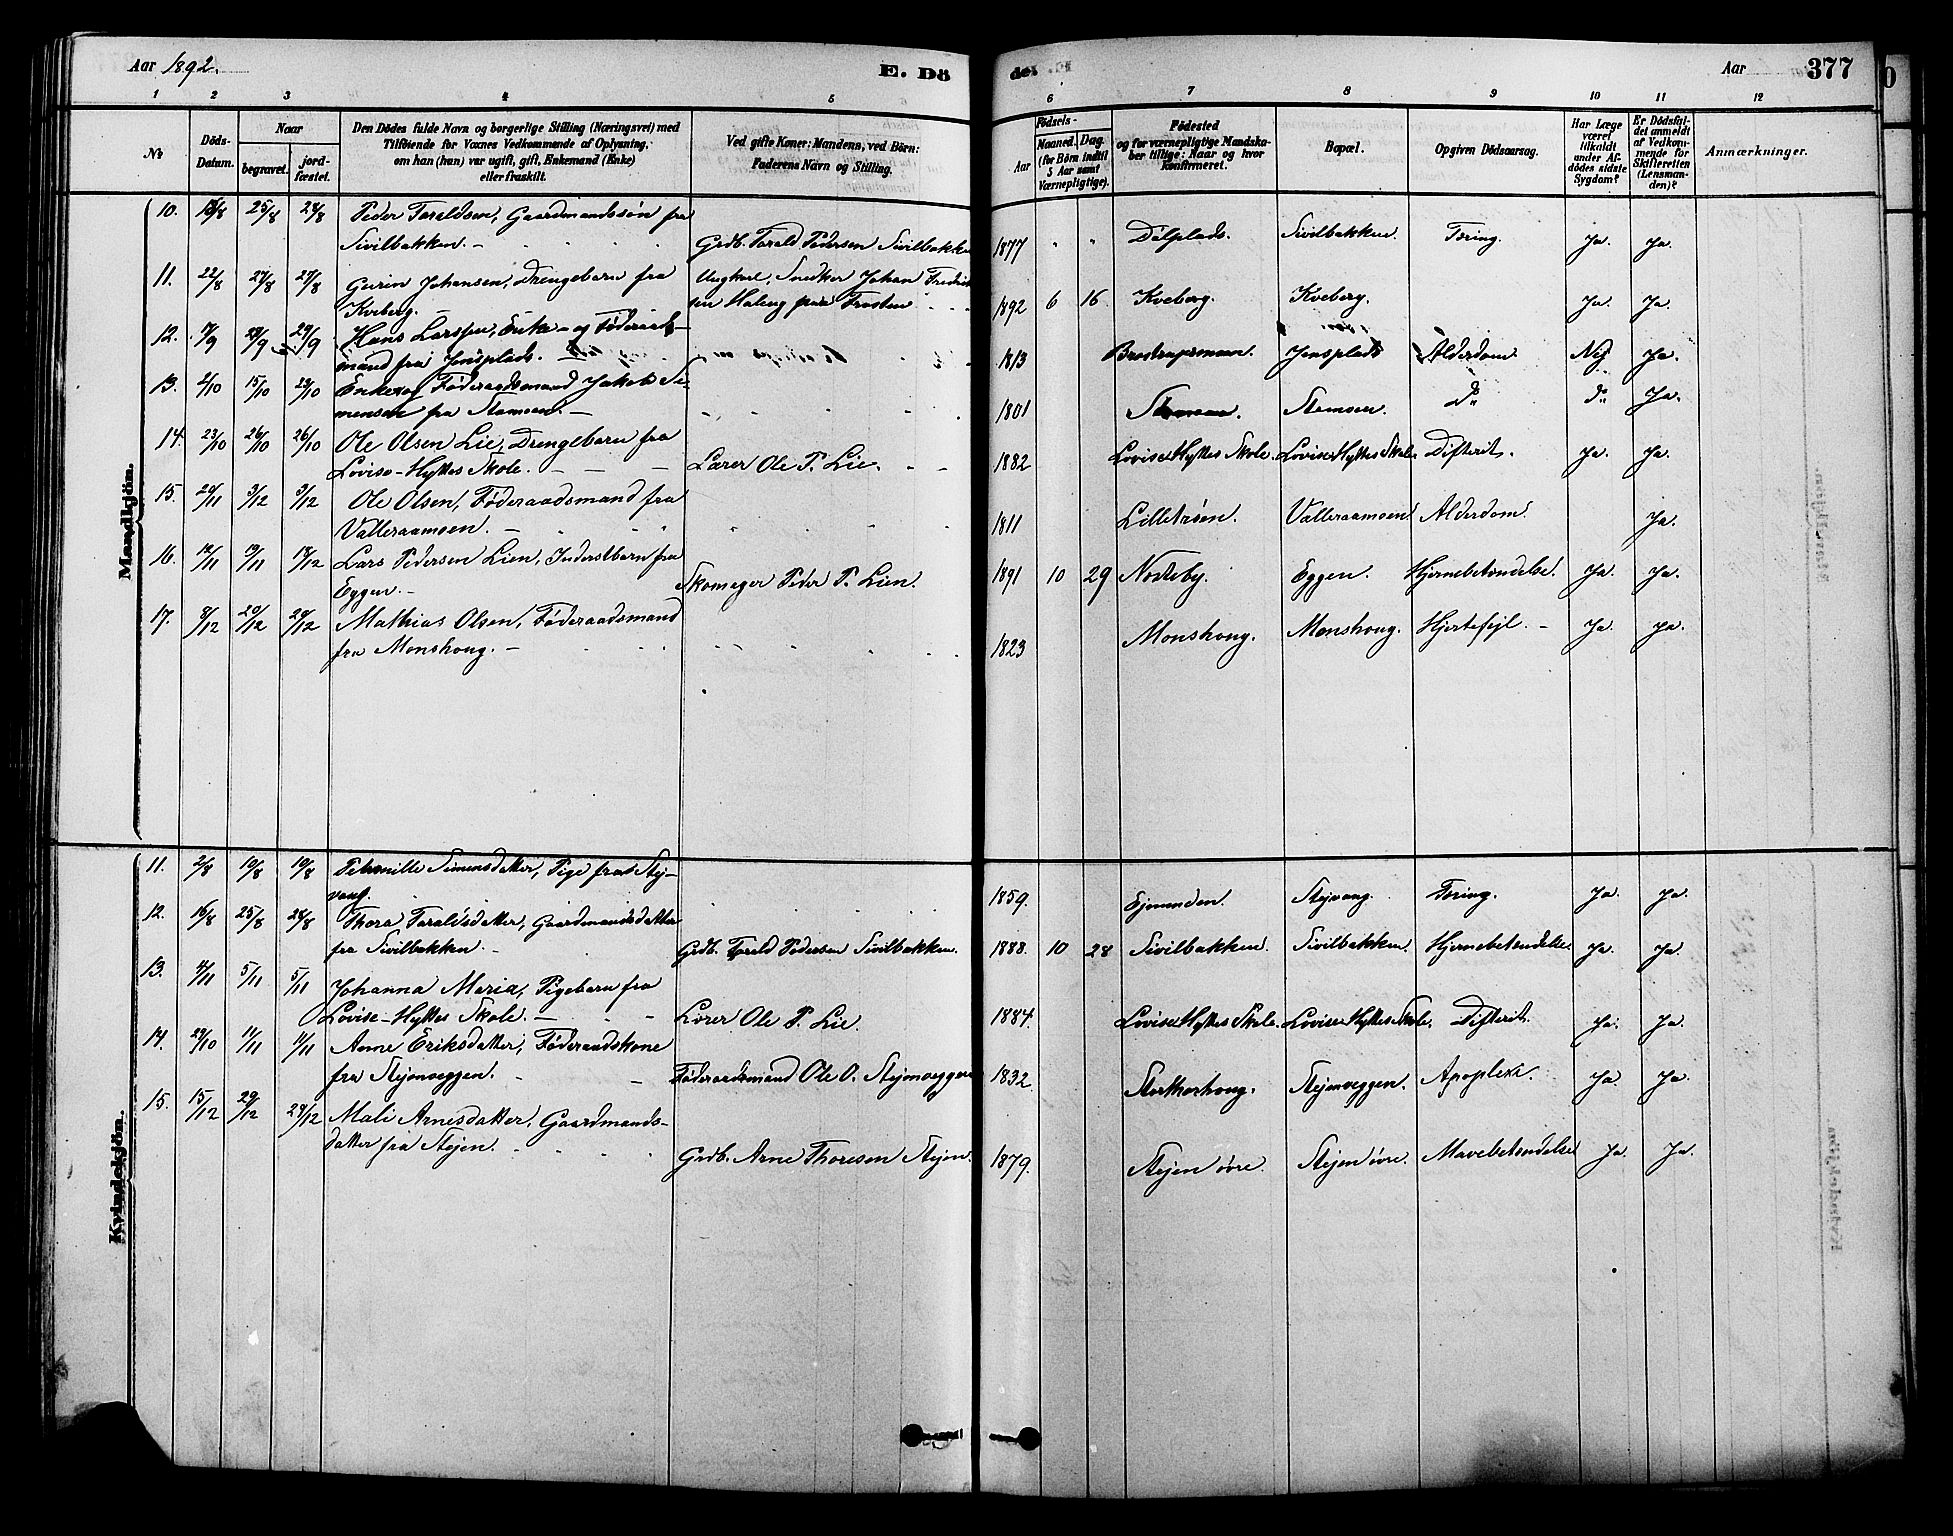 Aar 1892.
E. Dö
de.
Aar
377
1 2 3 4 5 6 7 8 9 10 11 12
No
Döds-Datum.
Naar
begravet.
jord-fæstet.
Den Dödes fulde Navn og borgerlige Stilling (Næringsvei) med
Tilföiende for Voxnes Vedkommende af Oplysning,
om han (hun) var ugift, gift, Enkemand (Enke)
eller fraskilt.
Ved gifte Koner: Mandens, ved Börn:
Faderens Navn og Stilling.
Födsels-
Aar
Maaned. Dag.
(for Börn indtil
5 Aar samt
Værnepligtige).
Födested
og for værnepligtige Mandska-
ber tillige: Naar og hvor
Konfirmeret.
Bopæl.
Opgiven Dödsaarsag.
Har Læge
været
tilkaldt
under Af-
dödes sidste
Sygdom?
Er Dödsfal-
det anmeldt
af Vedkom-
mende for
Skifteretten
(Lensman-
den)?
Anmærkninger.
Mandkjön.
10. 16/8 25/8 28/8 Peder Taraldsen, Gaardmandssøn fra
Sivilbakken. Grdb. Tarald Pedersen Sivilbakken 1877 " " Dølplads. Sivilbakken. Tæring. Ja. Ja.
11. 22/8 27/8 27/8 Gerin Johansen, Drengebarn fra
Kveberg. Ungkarl, Snedker Johan Fredrik
sen Haling paa Frosten 1892 6 16 Kveberg. Kveberg. Ja. Ja.
12. 17/9 29/9 29/9 Hans Larssen, Enke- og Føderaads-
mand fra Jensplads. 1813 Brostrupsmoen. Jensplads Alderdom Nej Ja.
13. 2/10 15/10 23/10 Enke og Føderaadsmand Jakob Si-
mensen fra Stamoen. 1801 Stamoen. Stemoen. do do Ja.
14. 23/10 26/10 26/10 Ole Olsen Lie, Drengebarn fra
Lovise-Hyttes Skole. Lærer Ole P. Lie. 1882 Lovise Hyttes Skole. Lovise Hyttes Skole. Difterit. Ja. Ja.
15. 20/11 3/12 3/12 Ole Olsen, Føderaadsmand fra
Valleraamoen. 1811 Lilletrøen. Valleraamoen. Alderdom. Ja.
16. 12/11 19/11 18/12 Lars Pedersen Lien, Inderstbarn fra
Eggen. Skomager Peder P. Lien. 1891 10 29 Nordeby. Eggen. Hjernebetændelse. Ja. Ja.
17. 8/12 20/12 29/12 Mathias Olsen, Føderaadsmand
fra Monshoug. 1823 Monshoug. Monshoug. Hjertefejl. Ja. Ja.
Kvindekjön.
11. 2/8 10/8 10/8 Pehrnille Simensdatter, Pige fra Stej-
vang. 1859. Ejmunden. Stejvang. Tæring. Ja. Ja.
12. 16/8 25/8 28/8 Thora Taraldsdatter, Gaardmandsdatter
fra Sivilbakken. Grdb. Tarald Pedersen Sivilbakken. 1888. 10 28 Sivilbakken. Sivilbakken. Hjernebetændelse. Ja. Ja.
13. 4/11 5/11 5/11 Johanna Maria, Pigebarn fra
Lovise-Hyttes Skole. Lærer Ole P. Lie. 1884. Lovise Hyttes Skole. Lovise Hyttes Skole. Difterit. Ja. Ja.
14. 29/10 11/11 11/11 Anne Eriksdatter, Føderaadskone
fra Stejonveggen. Føderaadsmand Ole O. Stejonveggen 1832 Storkorhoug. Stejonveggen. Apoplexi. Ja. Ja.
15. 15/12 29/12 29/12 Mali Arnesdatter, Gaardmands-
datter fra Stejen. Grdb. Arne Thoresen Stejen. 1879. Stejen øvre. Stejen øvre. Mavebetændelse Ja. Ja.